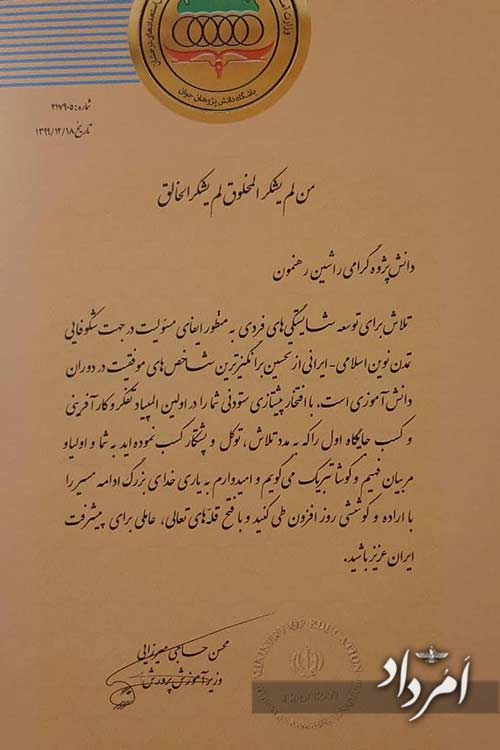 باشگاه دانش پژوهان جوان
شماره: ۲۱۷۹۰۵
تاریخ ۱۳۹۹/۱۲/۱۸
من لم یشکر المخلوق لم یشکر الخالق
دانش پژوه گرامی راشین رهنمون
تلاش برای توسعه شایستگی های فردی به منظور ایفای مسئولیت در جهت شکوفایی
تمدن نوین اسلامی - ایرانی از تحسین برانگیزترین شاخص های موفقیت در دوران
دانش آموزی است. با افتخار پیشتازی ستودنی شما را در اولین المپیاد تفکر و کارآفرینی
و کسب جایگاه اول را که به مدد تلاش، توکل و پشتکار کسب نموده اید به شما و اولیا و
مربیان فهیم و کوشا تبریک می گویم و امیدوارم به یاری خدای بزرگ ادامه مسیر را
با اراده و کوششی روز افزون طی کنید و با فتح قله های تعالی، عاملی برای پیشرفت
ایران عزیز باشید.
محسن حاجی میرزایی
وزیر آموزش و پرورش
MINISTRY OF EDUCATION
اَمُرداد